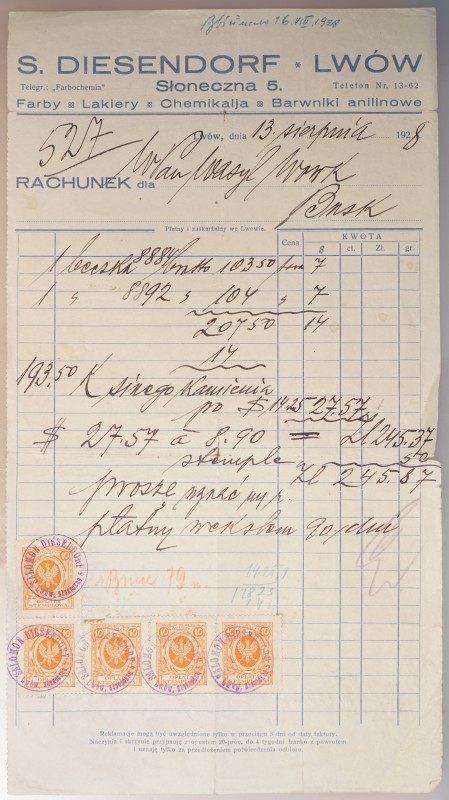 16.VIII.1928
S. DIESENDORF * LWÓW
Telegr.: „Farbochemia" Słoneczna 5. Telefon Nr. 13-62
Farby Lakiery Chemikalja Barwniki anilinowe
527
Lwów, dnia 13. sierpnia 1928
RACHUNEK dla Wasyl Work
Busk
Płatny i zaskarżalny we Lwowie.
Cena KWOTA
$ ct. Zł. gr.
1 beczka 8884 brutto 103.50 tara 7
1 " 8892 " 104 " 7
207 50 14
14
193,50 K sinego Kamienia
po $ 14.25 27.57
$ 27.57 à 8.90 = Zł 245.37
stemple 50
Zł 245.87
proszę
płatny wekslem 90/dni
19
SALOMON DIESENDORF
10
SALOMON DIESENDORF
10
10
10
10
Reklamacje mogą być uwzględnione tylko w przeciągu 3 dni od daty faktury.
Naczynia i skrzynie przyjmuję z opustem 20-proc. do 4 tygodni franko z powrotem
i uznaję tylko za przedłożeniem potwierdzenia odbioru.